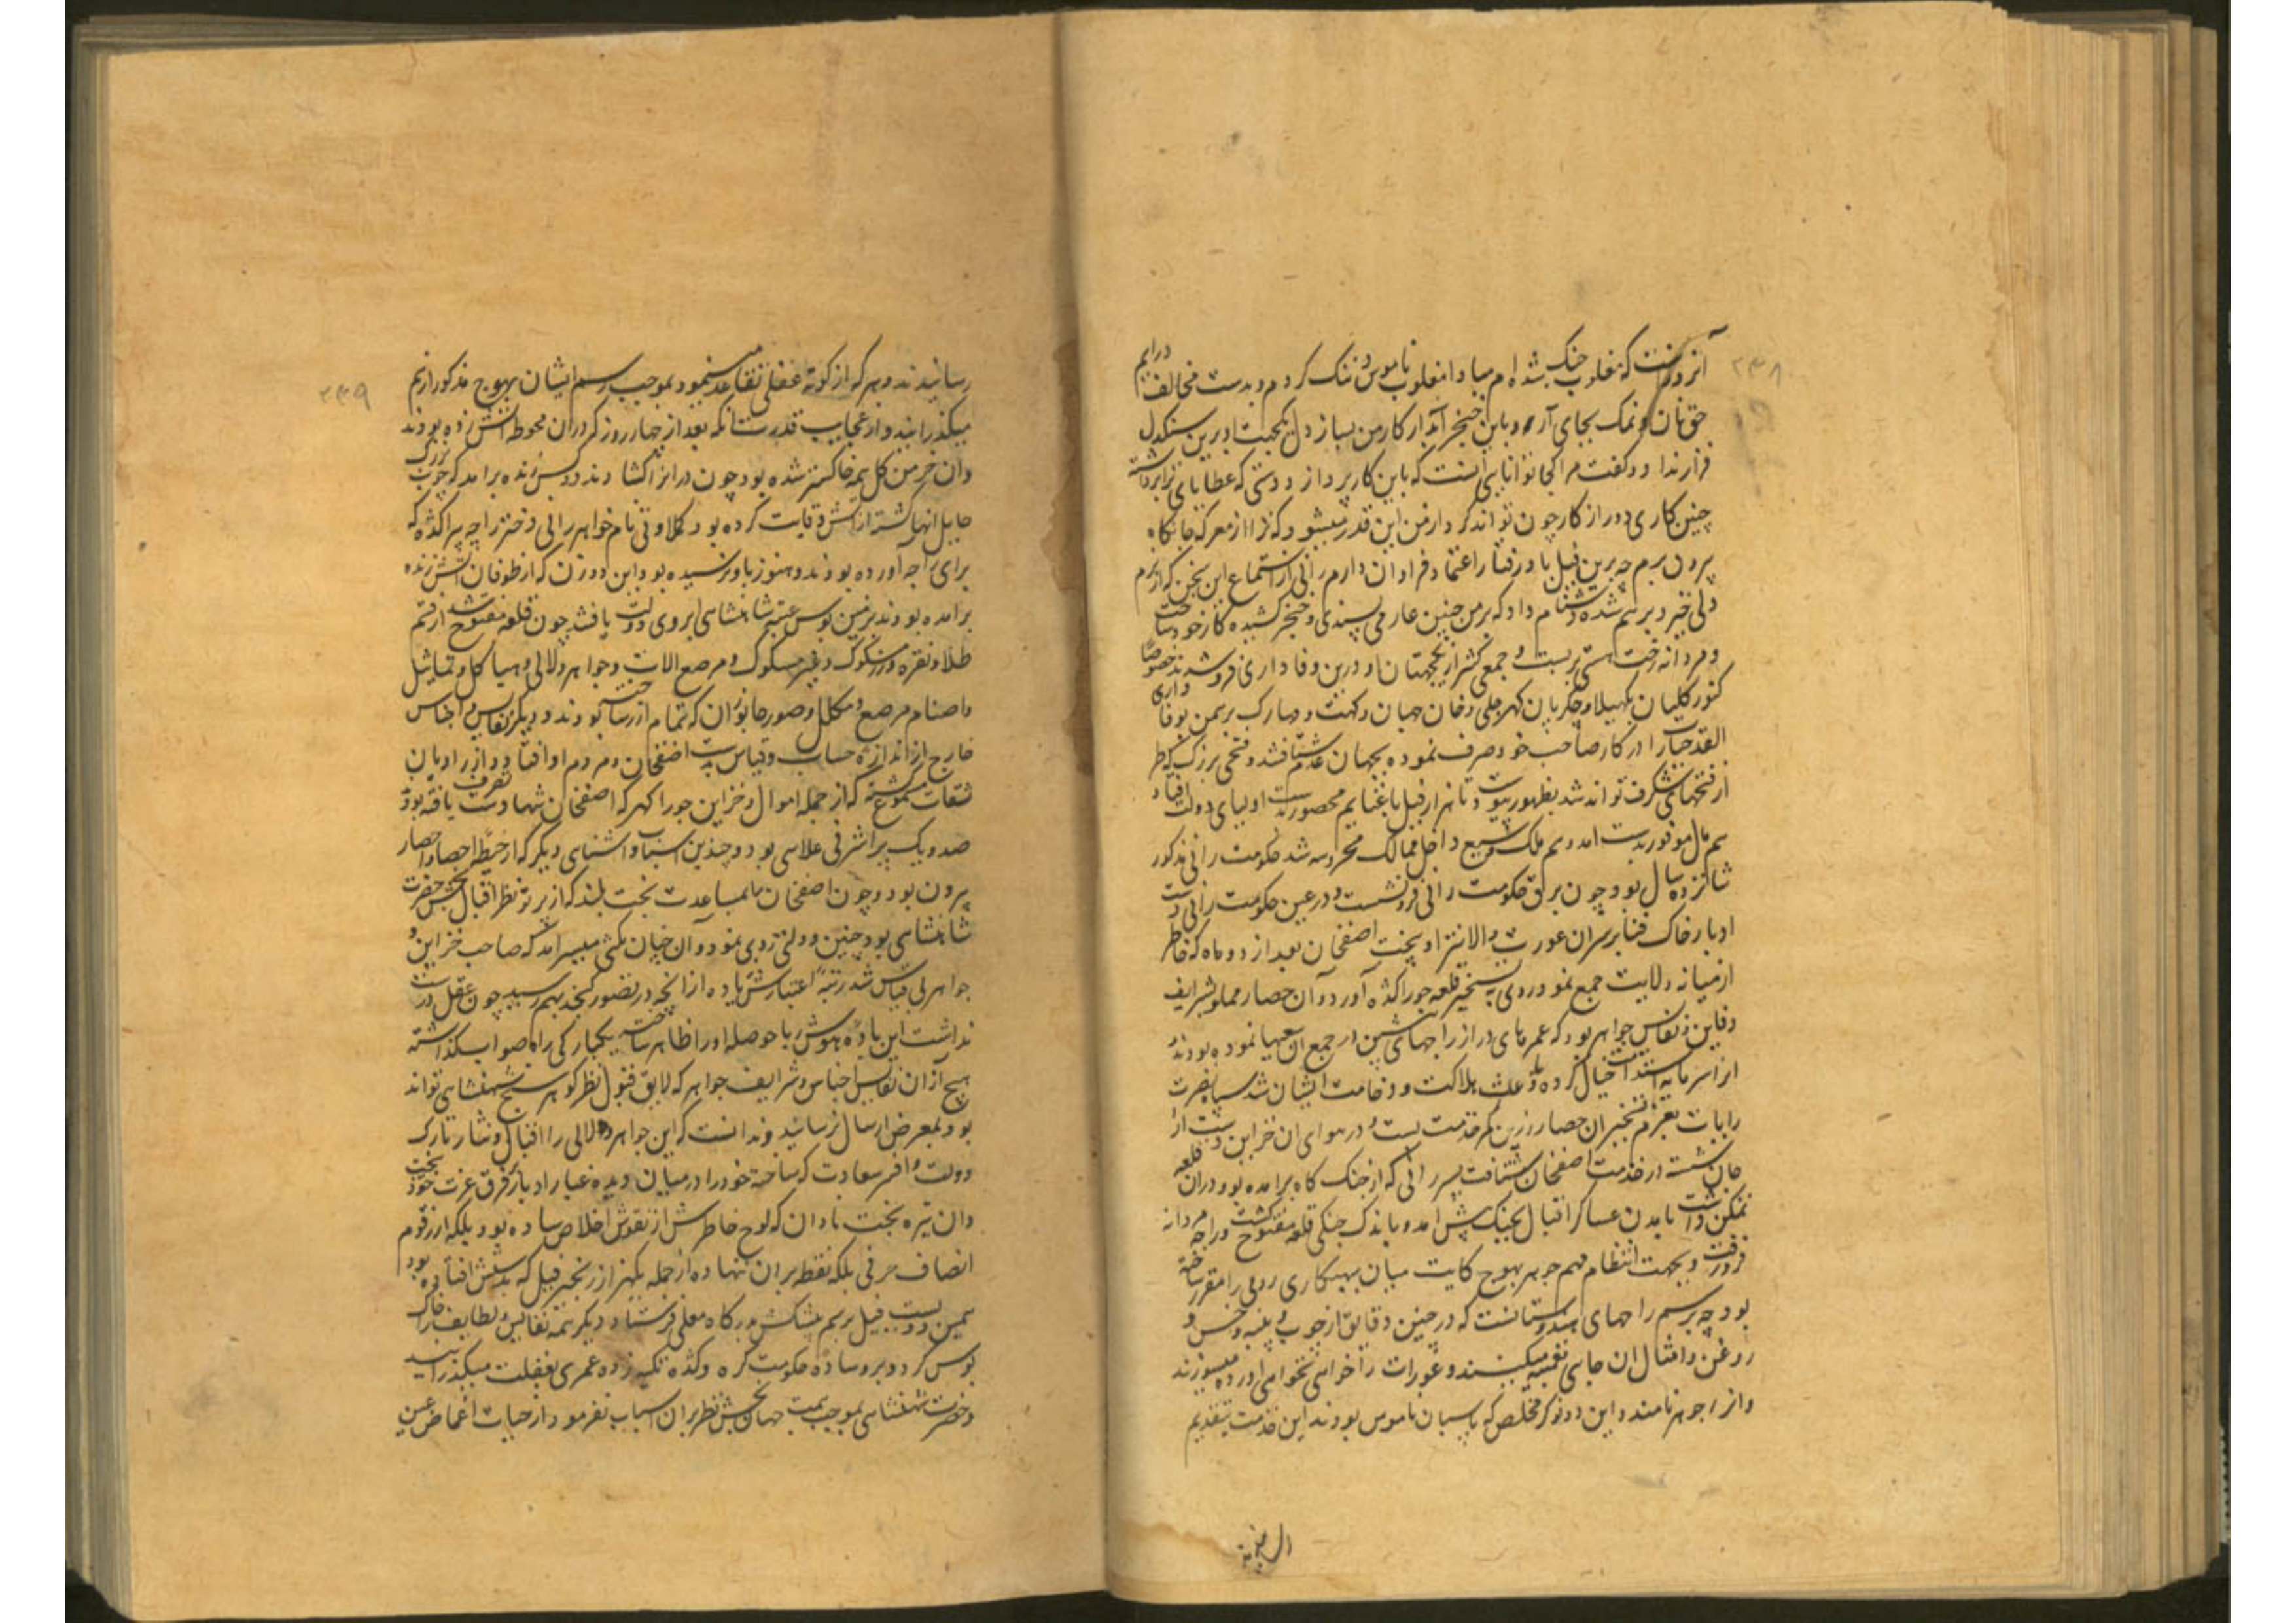 ۲۳۸
آنروزست که مغلوب جنک شده ام مبادا مغلوب ناموس و ننک کردم و بدست مخالف درایم
حق نان و نمک بجای آر و باین خنجر آبدار کار من بساز دل یکجهت او برین سنکدل
قرار نداد و کفت مرا کجا توانایی انست که باین کار پردازد و دستی که عطایای ترا برداشته
چنین کاری دور از کار چون تواند کرد از من این قدر میشود که ترا از معرکه جانکاه
برون برم چه برین فیل بادرفتار اعتماد فراوان دارم رانی از استماع این سخن که از نرم
دلی خبر و برهم شده دشنام داد که بر من چنین عار می پسندی و خنجر کشیده کار خود ساخت
و مردانه رخت هستی بربست و جمعی کثیر از یکجهتان او درین وفاداری فرو شدند خصوصا
کنور کلیان بکهیلا و چکرمان کهرچلی و خان جهان دکهت و مهارک برهمن بوفاداری
القد حیات را در کار صاحب خود صرف نموده بجهان عدم شتافتند و فتحی بزرک که طراز
از فتحهای شکرف تواند شد بظهور پیوست و تا هزار فیل با غنایم محصور بدست اولیای دولت افتاد
هم مال موفور بدست امد و هم ملک وسیع داخل ممالک محروسه شد حکومت رانی مذکور
شانزده سال بود چون برق حکومت رانی فرو نشست و در عین حکومت رانی دست
ادبار خاک فنا بر سر ان عورت والانژاد بیخت اصفخان بعد از دو ماه که خاطر
از میانه ولایت جمع نمود روی به تسخیر قلعه جوراکده آورد و آن حصار مملو شرایف
دفاین و نفایس جواهر بود که عمرهای دراز راجهای پیشین در جمع ان سعیها نموده بودند و
انرا سرمایه استدامت خیال کرده باعث هلاکت و وخامت ایشان شد سپاه نصرت
رایات بعزم تسخیر ان حصار زرین کمر خدمت بست و در هوای ان خزاین دست از
جان شسته در خدمت اصفخان شتافت پسر رانی که از جنک کاه برامده بود و دران قلعه
تمکن داشت بامدن عساکر اقبال بجنک پیش امد و باندک جنکی قلعه مفتوح کشت و راجه مردانه
فرو رفت و بجهت انتظام مهم جوهر بهوج کایت و میان بهیکاری رومی را مقرر ساخته
بود چه رسم راجهای هندوستانست که در چنین دقایق از چوب و پنبه و خس و
روغن و امثال ان جایی تعبیه میکنند و عورات را خواهی نخواهی اورده میسوزند
وانرا جوهر نامند و این دو نوکر مخلص که پاسبان ناموس بودند این خدمت بتقدیم
رسانیدند
۲۳۹
رسانیدند و هر که از کوته عقلی تقاعد مینمود بموجب رسم ایشان بهوج مذکور از هم
میکذرانید و از عجایب قدرت انکه بعد از چهار روز که دران محوطه اتش زده بودند
و ان خرمن کل همه خاکستر شده بود چون در انرا کشادند دو کس زنده برامد که چوب بزرک
حایل انها کشته از اتش وقایت کرده بود کملاوتی نام خواهر رانی و دختر راجه پراکده که
برای راجه آورده بودند و هنوز باو نرسیده بود و این دو زن که از طوفان اتش زنده
برامده بودند بزمین بوس عتبه شاهنشاهی ابروی دولت یافتند چون قلعه مفتوح شد از قسم
طلا و نقره و زر مسکوک و غیر مسکوک و مرصع الات و جواهر و لالی و هیاکل و تماثیل
و اصنام مرصع و مکلل و صور جانوران که تمام از زر ساخته بودند و دیکر نفایس و اجناس
خارج از اندازه حساب و قیاس بدست اصفخان و مردم او افتاد و از راویان
ثقات مسموع کشته که از جمله اموال و خزاین جوراکهر که اصفخان شهادت تصرف یافته بود
صد و یک پر اشرفی علایی بود و چندین اسباب و اشیای دیکر که از حیطه احصا و احصار
بیرون بود و چون اصفخان بامساعدت بخت بلند که از پرتو نظر اقبال بخش حضرت
شاهنشاهی بود چنین دولتی روی نمود و آن چنان ملکی میسر امدش که صاحب خزاین و
جواهر بی قیاس شد رتبه اعتبارش زیاده از انچه در تصور کنجد بهم رسید چون عقل درست
نداشت این باده هوش ربا حوصله او را ظاهر ساخته یکبارکی راه صواب کذاشته
هیچ از آن نفایس اجناس و شرایف جواهر که لایق قبول نظر کوهر سنج شهنشاهی تواند
بود بمعرض ارسال نرسانید و ندانست که این جواهر و لالی را اقبال و نثار تارک
دولت و افسر سعادت که ساخته خود را در میان دیده غبار ادبار بر فرق عزت خود بیخت
و ان تیره بخت نادان که لوح خاطرش از نقوش اخلاص ساده بود بلکه از رقوم
انصاف حرفی بلکه نقطه بران ننهاده از جمله یکهزار زنجیر فیل که بدستش افتاده بود
همین دویست فیل برسم پیشکش بدرکاه معلی فرستاد و دیکر تتمه نفایس و لطایف را خاک
پوس کرد و بروساده حکومت کره و کده تکیه زده عمری بغفلت میکذرانید
و حضرت شهنشاهی بموجب همت جهان بخش نظر بران اسباب نفرمود از حیات اغماض عین